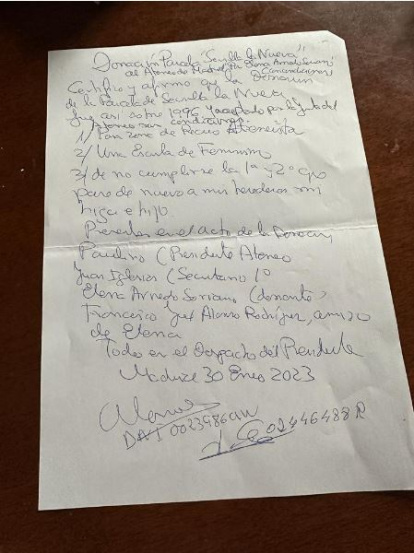 Donación Parcela Sevilla la Nueva
al Ateneo de Madrid Elena Arnedo Soriano
Condiciones
Certifico y afirmo que la Donación
de la Parcela de Sevilla la Nueva
fue así sobre 1996 y aceptado por la Junta del
Ateneo sus condiciones
1/ Para zona de Recreo Ateneista
2/ Una Escuela de Feminismo
3/ de no cumplirse la 1ª y 2ª
pase de nuevo a mis herederos mi
hija e hijo
Presentes en el acto de la Donación
Paulino (Presidente Ateneo
Juan Iglesias (Secretario 1º
Elena Arnedo Soriano (donante)
Francisco José Alonso Rodríguez, amigo
de Elena
Todo en el Despacho del Presidente
Madrid 30 Enero 2023
02446488R